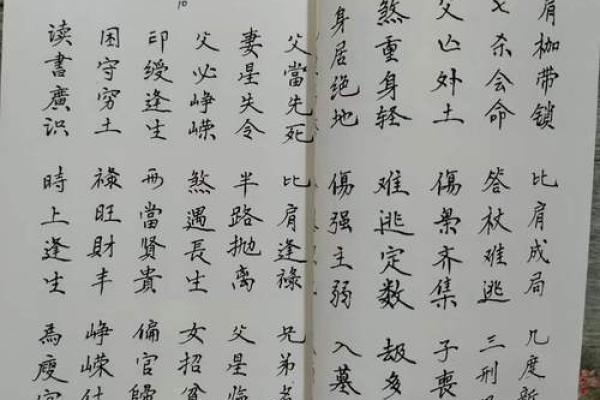 肩枷带锁 比肩成局 几度
杀会命 答杖难逃 三刑
父亡外土 傷枭齐集 子喪
煞重身轻 难逃定数 劫多
身居绝地 傷强主弱 入墓
父當先死 比肩逢祿 兄弟
妻星失令 半路抛离 父星
父必峥嵘 煞遇長生 女招
印绶逢生 毋當賢貴 偏官
困守穷土 祿旺財丰 峥嵘
读書廣识 時上逢生 為
10